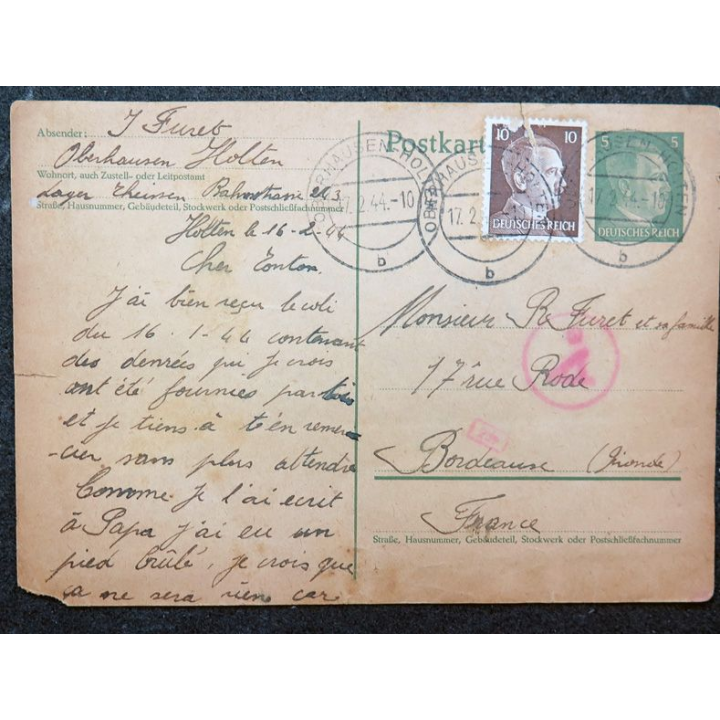 Absender: J Furet
Oberhausen Holten
Wohnort, auch Zustell- oder Leitpostamt
Lager Theissen Bahnstrasse 243
Straße, Hausnummer, Gebäudeteil, Stockwerk oder Postschließfachnummer
Holten le 16-2-44
Cher Tonton
J'ai bien reçu le coli
du 16-1-44 contenant
des denrées qui je crois
ont été fournies par toi
et je tiens à t'en remer-
-cier sans plus attendre
Comme je l'ai ecrit
à Papa j'ai eu un
pied brûlé, je crois que
ça ne sera rien car
Postkarte
OBERHAUSEN-HOLTEN
17.2.44.-10
b
OBERHAUSEN
17.2
b
10 10
DEUTSCHES REICH
5 5
DEUTSCHES REICH
17.2.44.-10
b
Monsieur R Furet et sa famille
17 rue Rode
Bordeaux (Gironde)
France
Straße, Hausnummer, Gebäudeteil, Stockwerk oder Postschließfachnummer